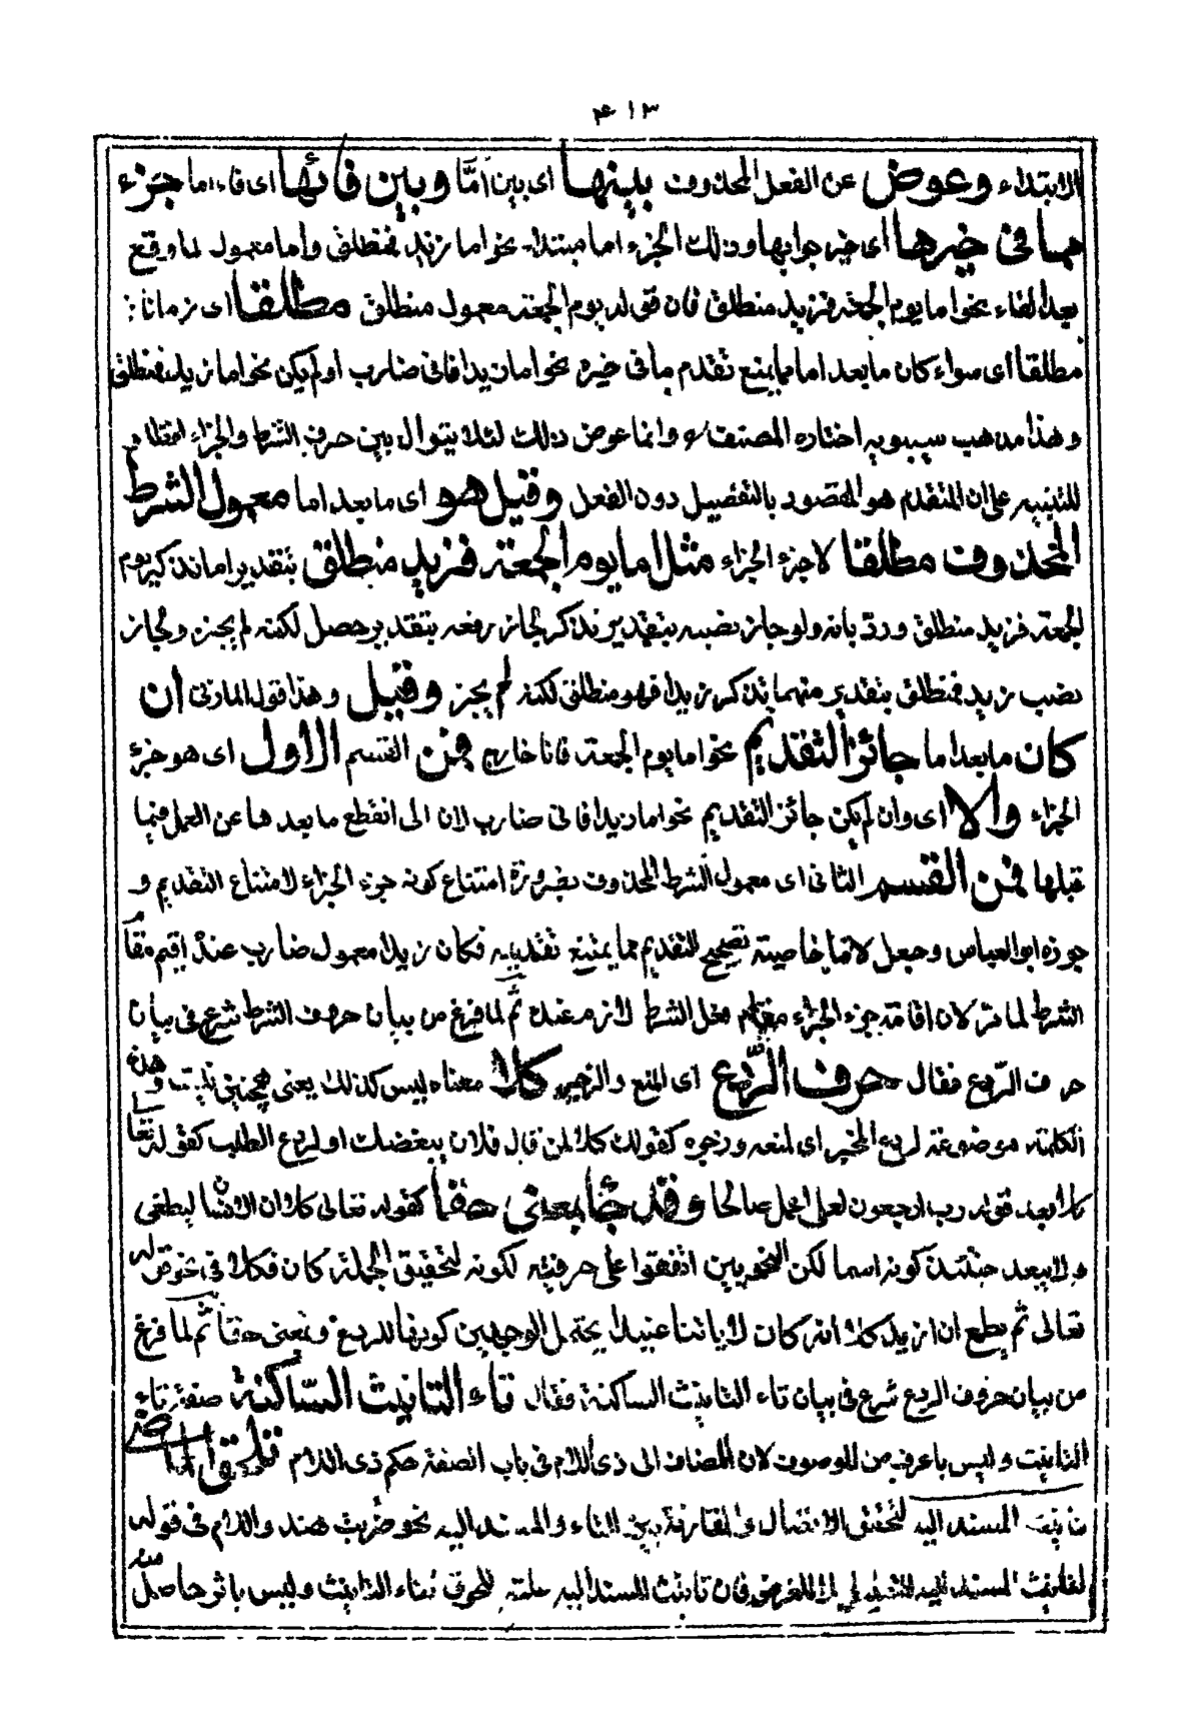 ٤١٣
الابتداء وعوض عن الفعل المحذوف بينها اى بين امّا وبين فائها اى فاء اما جزء
مما فى خيرها اى خير جوابها وذلك الجزء اما مبتداء نحو اما زيد فمنطلق واما معمول لما وقع
بعد الفاء نحو اما يوم الجمعة فزيد منطلق فان قوله يوم الجمعة معمول منطلق مطلقا اى زمانا :
مطلقا اى سواء كان ما بعد اما مما يمنع تقدم ما فى خيره نحو اما زيدا فانى ضارب او لم يكن نحو اما زيد فمنطلق
وهذا مذهب سيبويه اختاره المصنف وانما عوض ذلك لئلا يتوال بين حرف الشرط والجزاء
للتنبيه على ان المتقدم هو المقصود بالتفصيل دون الفعل وقيل هو اى ما بعد اما معمول الشرط
المحذوف مطلقا لا جزء الجزاء مثل اما يوم الجمعة فزيد منطلق بتقدير اما تذكر يوم
الجمعة فزيد منطلق وردّ بانه ولو جاز نصبه بتقدير تذكر لجاز رفعه بتقدير حصل لكنه لم يجز ولجاز
نصب زيد فمنطلق بتقدير مهما تذكر زيدا فهو منطلق لكنه لم يجز وقيل وهذا قول المازنى ان
كان ما بعد اما جائز التقديم نحو اما يوم الجمعة فانا خارج فمن القسم الاول اى هو جزء
الجزاء والا اى وان لم يكن جائز التقديم نحو اما زيدا فانى ضارب لان انى انقطع ما بعدها عن العمل فيما
قبلها فمن القسم الثانى اى معمول الشرط المحذوف بضرورة امتناع كونه جزء الجزاء لامتناع التقديم و
جوزه ابو العباس وجعل لاما خاصية تصحيح التقديم مما يمتنع تقديمه فكان زيدا معمول ضارب عنده اقيم مقام
الشرط لما مر لان اقامة جزء الجزاء مقام محل الشرط لازم عنده ثم لما فرغ من بيان حروف الشرط شرع فى بيان
حرف الردع فقال حرف الردع اى المنع والزجر كلا معناه ليس كذلك يعنى يجئ وهذه
الكلمة موضوعة لردع المخبر اى لمنعه وزجره كقولك كلا لمن قال فلان يبغضك او لردع الطلب كقوله تعالى
كلا بعد قوله رب ارجعون لعلى اعمل صالحا وقد جاء بمعنى حقا كقوله تعالى كلا ان الانسان ليطغى
ولا يبعد حينئذ كونه اسما لكن النحويين اتفقوا على حرفيته لكونه لتحقيق الجملة كان فكلا فى نحو قوله
تعالى ثم يطمع ان ازيد كلا انه كان لآياتنا عنيدا يحتمل الوجهين كونها للردع وبمعنى حقا ثم لما فرغ
من بيان حروف الردع شرع فى بيان تاء التانيث الساكنة فقال تاء التانيث الساكنة صفة تاء
التانيث وليس باعرف من الموصوف لان المضاف الى ذى اللام فى باب الصفة حكم ذى اللام تلحق الماضى
تانيث المسند اليه لتحقق الاتصال والمقارنة بين التاء والمسند اليه نحو ضربت هند واللام فى قوله
لتانيث المسند اليه فان تانيث المسند اليه علة للحوق تاء التانيث وليس باثر حاصل منه